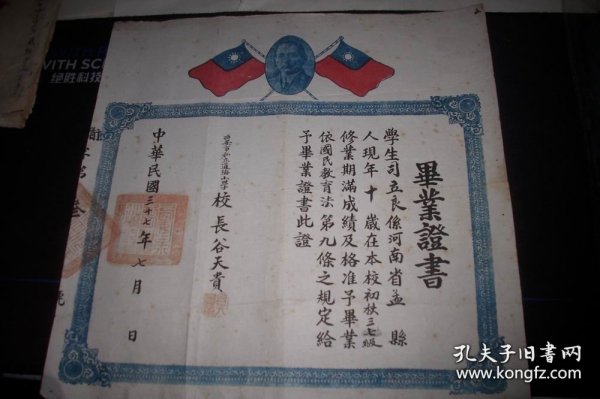 畢業證書
學生司立良係河南省孟縣
人現年十歲在本校初級三七級
修業期滿成績及格准予畢業
依國民教育法第九條之規定給
予畢業證書此證
校長谷天貴
中華民國三十七年七月 日
WITH SC
绝胜科技
孔夫子旧书网
www.kongfz.com